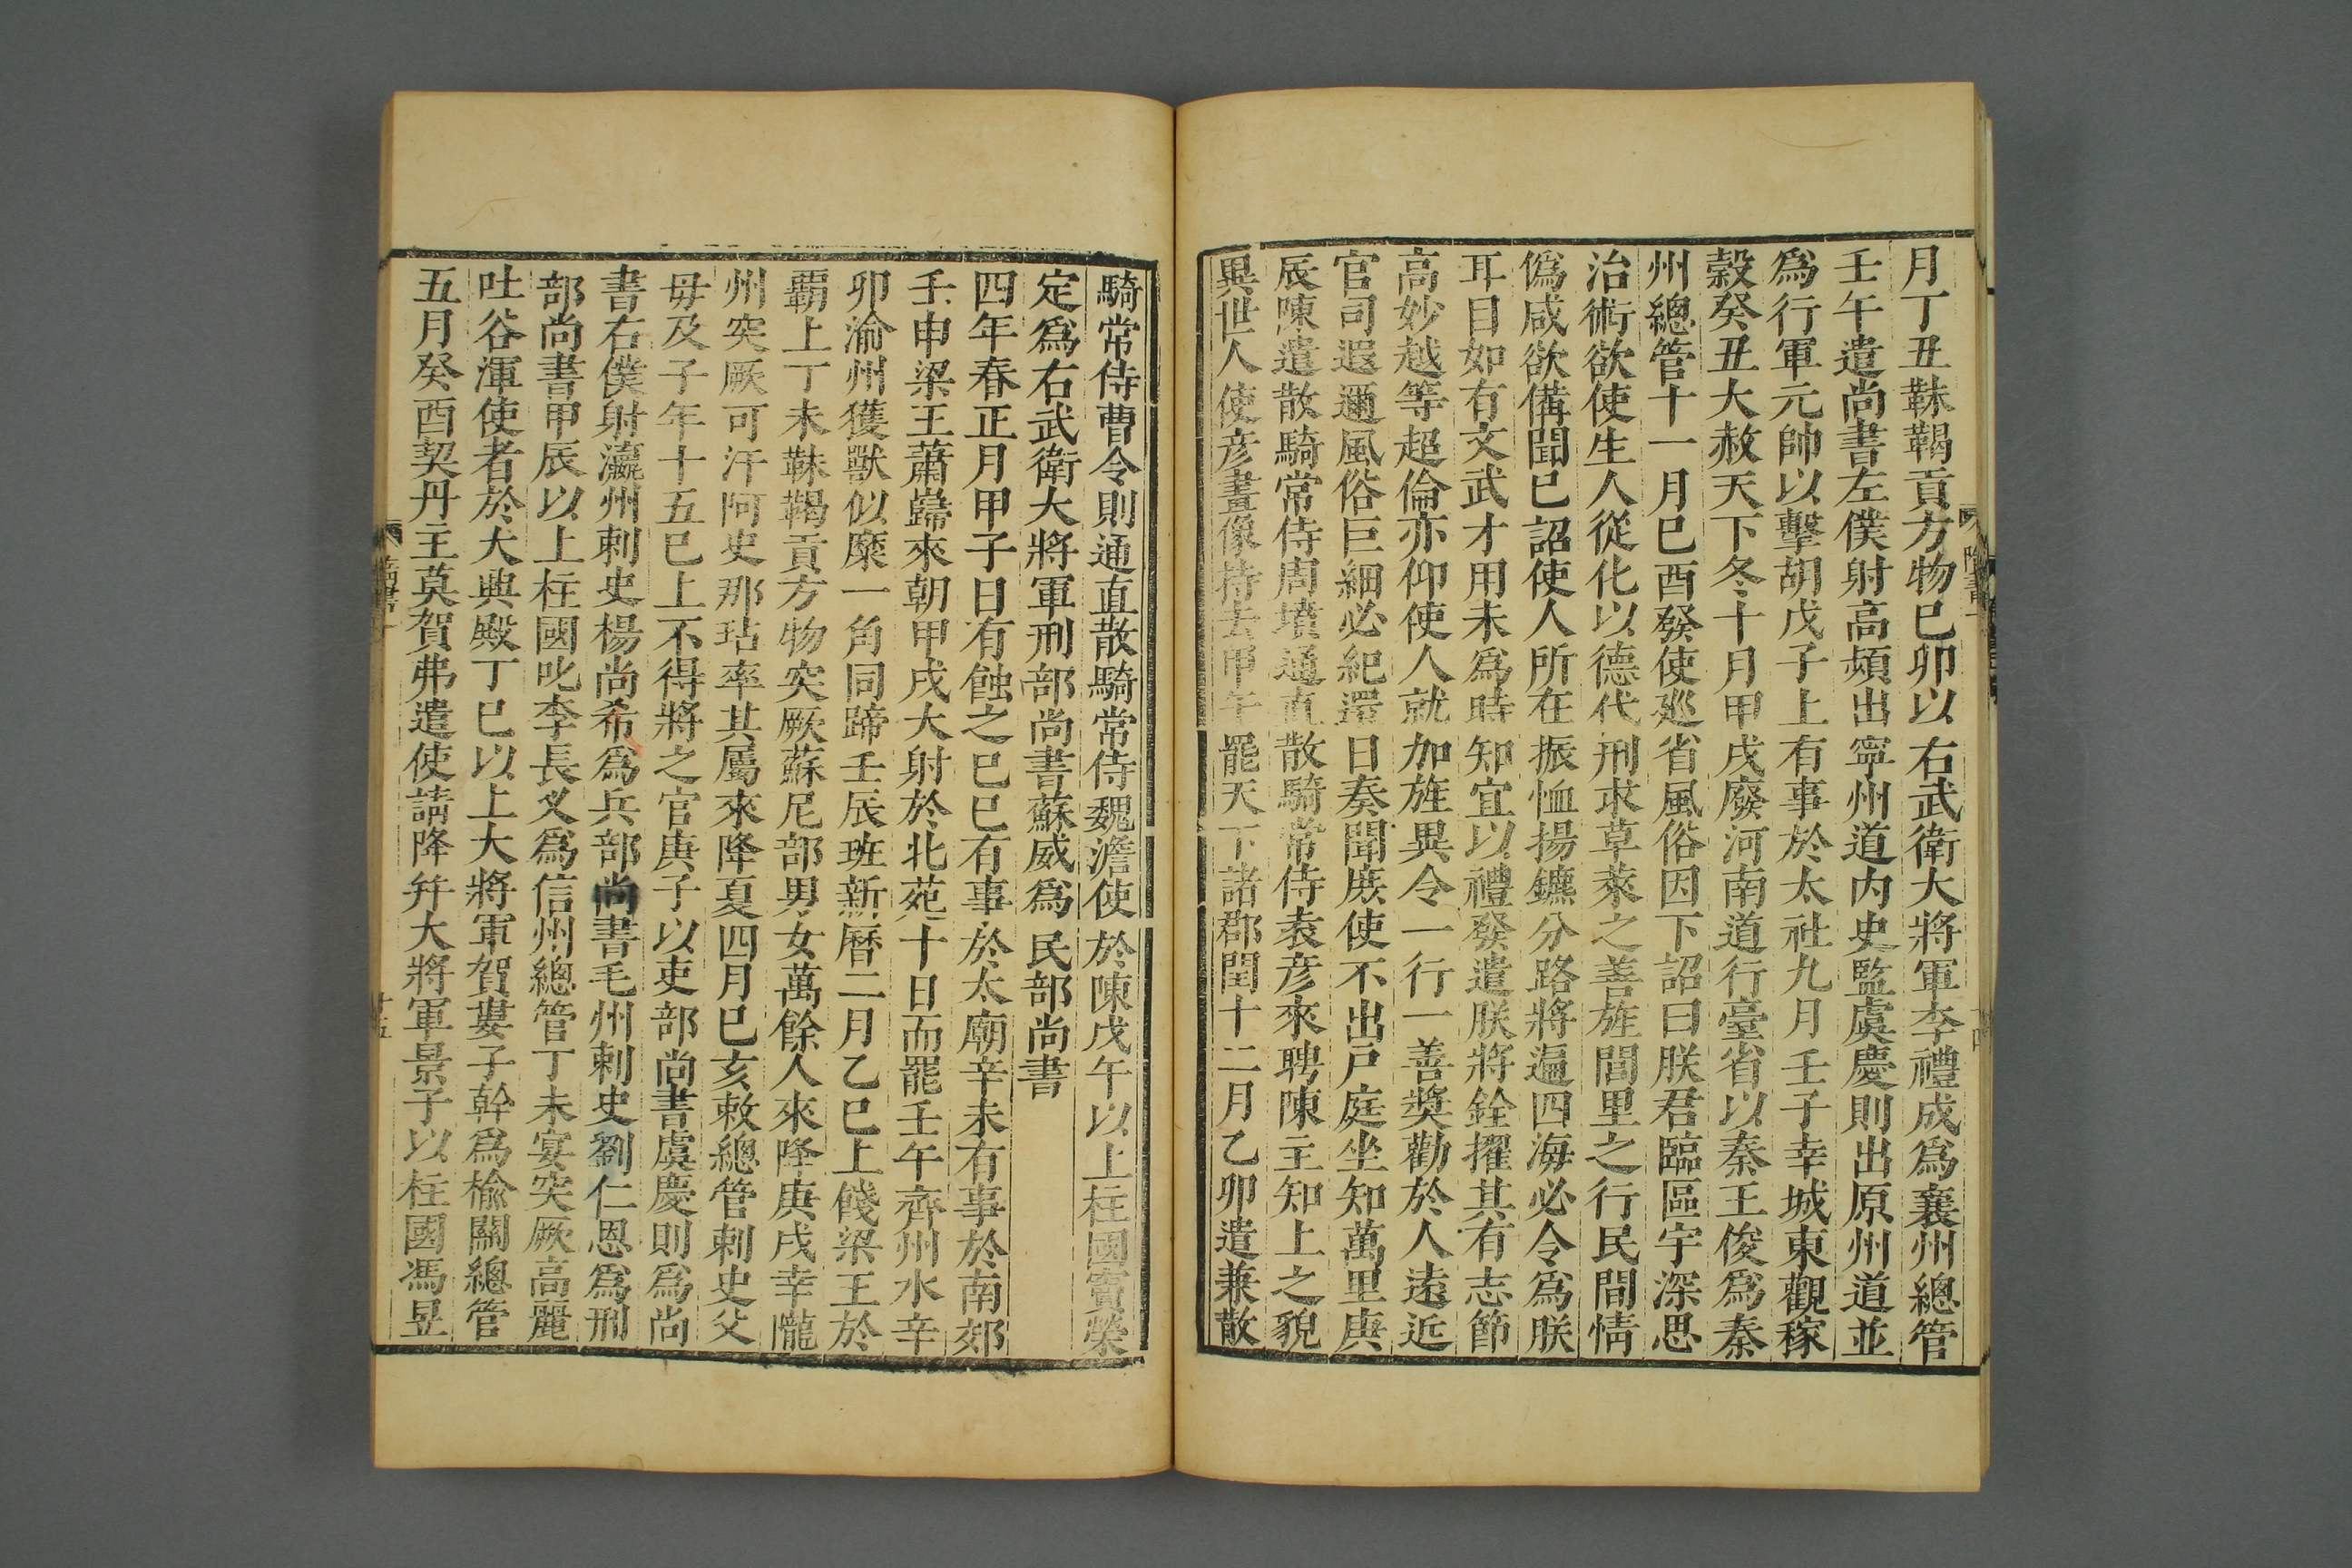 月丁丑靺鞨貢方物巳卯以右武衛大將軍李禮成爲襄州總管
壬午遣尚書左僕射高熲出寧州道内史監虞慶則出原州道並
爲行軍元帥以擊胡戊子上有事於太社九月壬子幸城東觀稼
穀癸丑大赦天下冬十月甲戌廢河南道行臺省以秦王俊爲秦
州總管十一月巳酉發使廵省風俗因下詔曰朕君臨區宇深思
治術欲使生人從化以德代刑求草萊之善旌閭里之行民間情
僞咸欲備聞巳詔使人所在振恤揚鑣分路將遍四海必令爲朕
耳目如有文武才用未爲時知宜以禮發遣朕將銓擢其有志節
高妙越等超倫亦仰使人就加旌異令一行一善奬勸於人遠近
官司遐邇風俗巨細必紀還日奏聞庶使不出戸庭坐知萬里庚
辰陳遣散騎常侍周墳通直散騎常侍袁彦來聘陳主知上之貌
異世人使彦畫像持去甲午罷天下諸郡閏十二月乙卯遣兼散
騎常侍曹令則通直散騎常侍魏澹使於陳戊午以上柱國竇榮
定爲右武衛大將軍刑部尚書蘇威爲民部尚書
四年春正月甲子日有蝕之巳巳有事於太廟辛未有事於南郊
壬申梁王蕭巋來朝甲戌大射於北苑十日而罷壬午齊州水辛
卯渝州獲獸似麋一角同蹄壬辰班新曆二月乙巳上餞梁王於
覇上丁未靺鞨貢方物突厥蘇尼部男女萬餘人來降庚戌幸隴
州突厥可汗阿史那玷率其屬來降夏四月巳亥敕總管刺史父
母及子年十五巳上不得將之官庚子以吏部尚書虞慶則爲尚
書右僕射瀛州刺史楊尚希爲兵部尚書毛州刺史劉仁恩爲刑
部尚書甲辰以上柱國叱李長叉爲信州總管丁未宴突厥高麗
吐谷渾使者於大典殿丁巳以上大將軍賀婁子幹爲榆關總管
五月癸酉契丹主莫賀弗遣使請降幷大將軍景子以柱國馮昱
十五